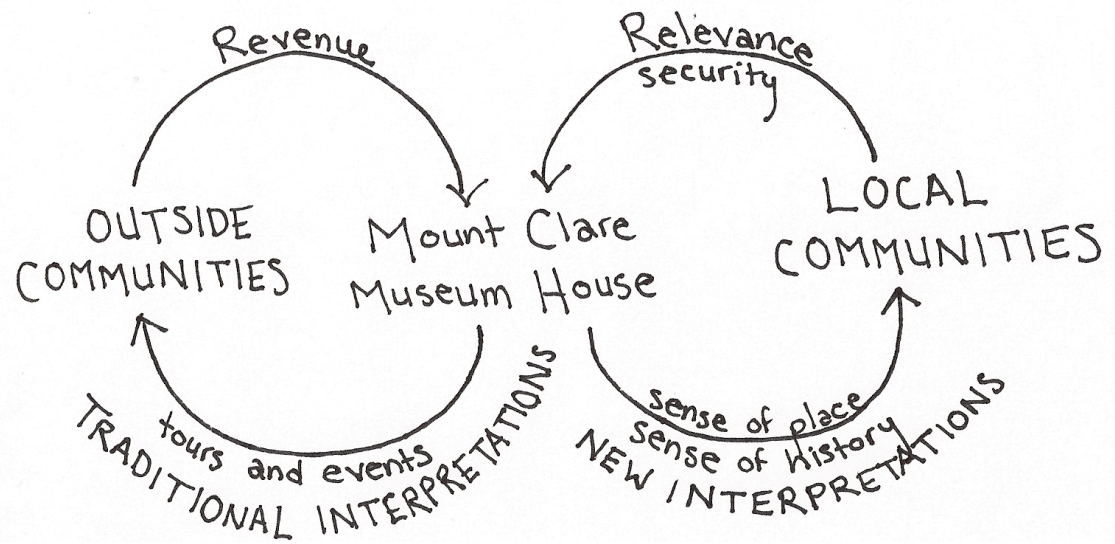 Revenue
Relevance
security
OUTSIDE
COMMUNITIES
Mount Clare
Museum House
LOCAL
COMMUNITIES
tours and events
TRADITIONAL INTERPRETATIONS
sense of place
sense of history
NEW INTERPRETATIONS